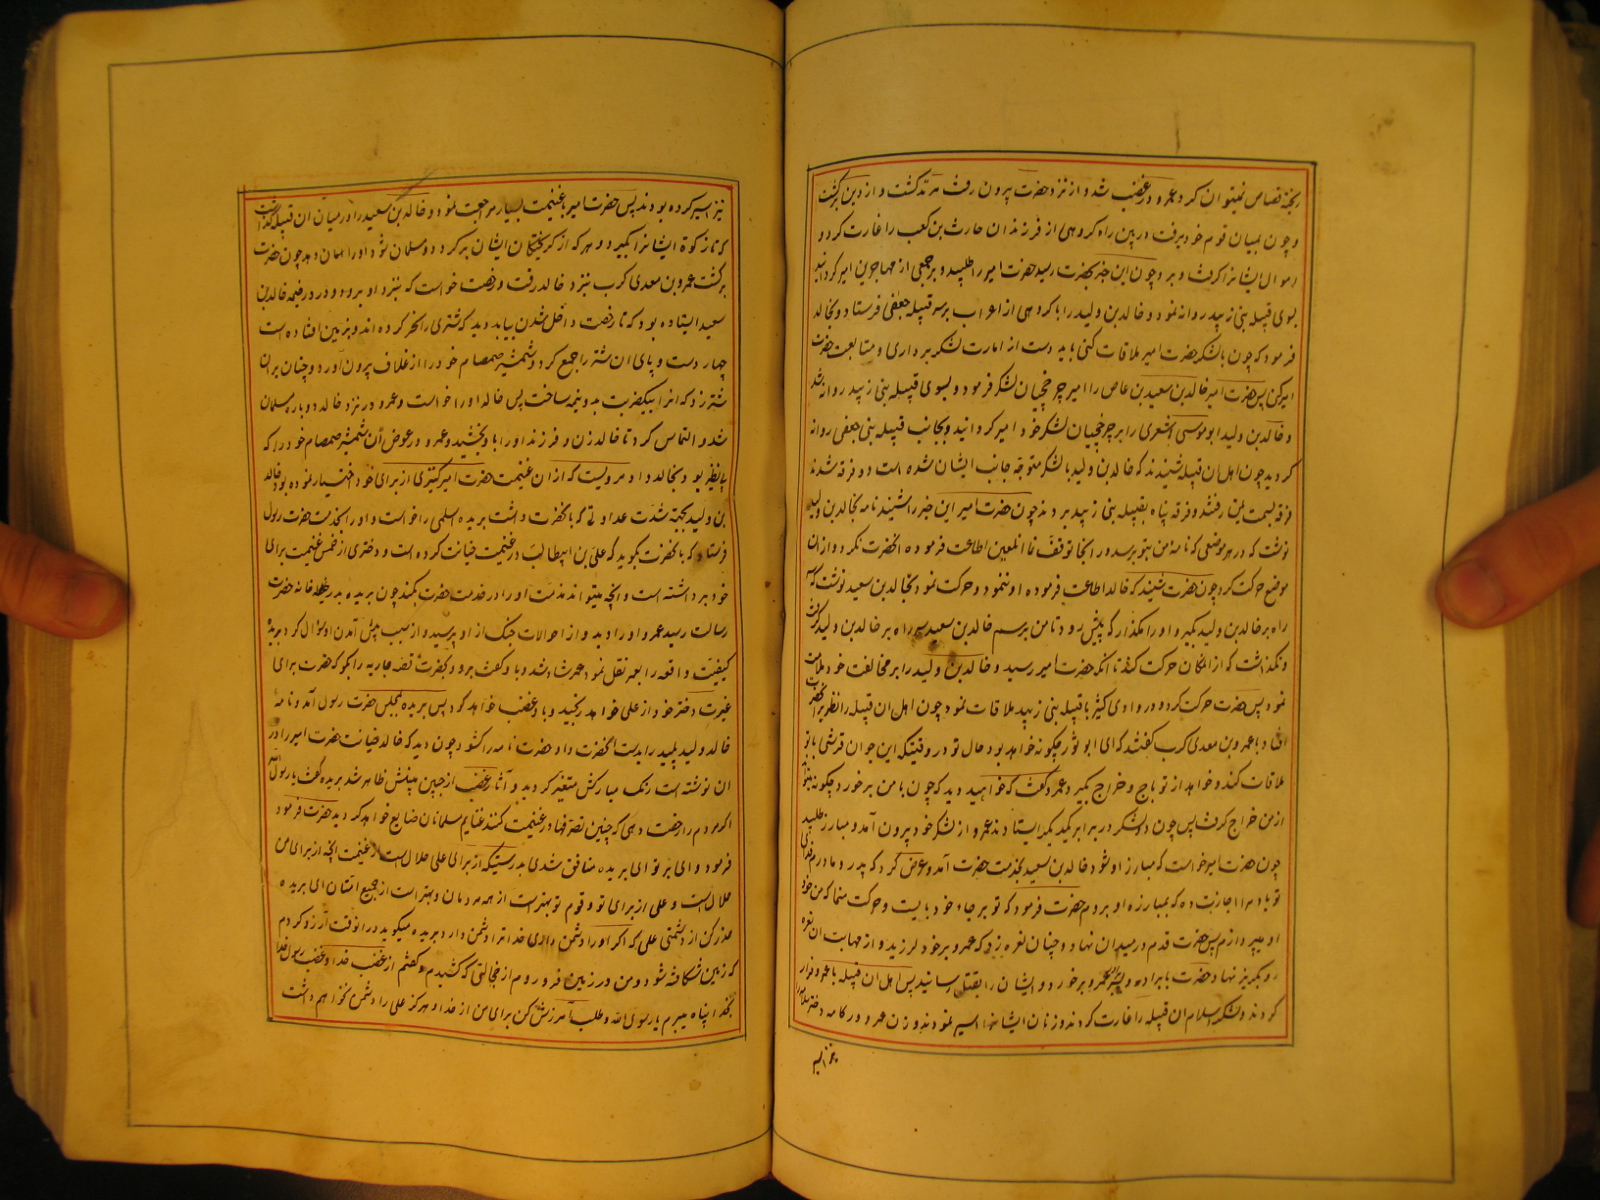 ریخته قصاص نمیتوان کرد عمرو در غضب شد و از نزد حضرت بیرون رفت مرتد گشت و از دین برگشت
و چون بمیان قوم خود میرفت در بین راه گروهی از فرزندان حارث بن کعب را غارت کرد و
اموال ایشانرا گرفت و برد چون این خبر بحضرت رسید حضرت امیر را طلبید و بر جمعی از مهاجرین امیر گردانید
بسوی قبیله بنی زبید روانه نمود و خالد بن ولید را با گروهی از اعراب بر سر قبیله جعفی فرستاد و بخالد
فرمود که چون بالشکر حضرت امیر ملاقات کنی باید دست از امارت لشکر برداری و متابعت حضرت
امیر کنی پس حضرت امیر خالد بن سعید بن عاص را امیر چرخچیان لشکر فرمود و بسوی قبیله بنی زبید روانه شد
و خالد بن ولید ابو موسی اشعری را بر چرخچیان لشکر خود امیر گردانید و بجانب قبیله بنی جعفی روانه
گردید چون اهل آن قبیله شنیدند که خالد بن ولید با لشکر متوجه جانب ایشان شده است دو فرقه شدند
فرقه بسمت یمن رفتند و فرقه پناه بقبیله بنی زبید بردند چون حضرت امیر این خبر را شنید نامه بخالد بن ولید
نوشت که در هر موضعی که نامه من بتو برسد در آنجا توقف نما آنلعین اطاعت فرموده آنحضرت نکرد و از آن
موضع حرکت کرد چون حضرت شنید که خالد اطاعت فرموده او ننمود و حرکت نمود بخالد بن سعید نوشت که سر
راه بر خالد بن ولید بگیر و او را مگذار که پیش رود تا من برسم خالد بن سعید سر راه بر خالد بن ولید گرفت
و نگذاشت که از آنمکان حرکت کند تا آنکه حضرت امیر رسید و خالد بن ولید را بر مخالفت خود ملامت
نمود پس حضرت حرکت کرد و در وادی کثیر با قبیله بنی زبید ملاقات نمود چون اهل آن قبیله را نظر بر آنحضرت
افتاد با عمرو بن معدی کرب گفتند که ای ابو ثور چگونه خواهد بود حال تو در وقتیکه این جوان قرشی با تو
ملاقات کند و خواهد از تو باج و خراج بگیرد عمرو گفت که خواهید دید که چون با من برخورد چگونه میتواند
از من خراج گرفت پس چون دو لشکر در برابر یکدیگر ایستادند عمرو از لشکر خود بیرون آمد و مبارز طلبید
چون حضرت امیر خواست که مبارز او شود خالد بن سعید بخدمت حضرت آمد و عرض کرد که پدر و مادرم فدای
تو باد مرا اجازت ده که بمبارزه او بروم حضرت فرمود که تو بر جای خود بایست و حرکت منما که من خود
او میپردازم پس حضرت قدم در میدان نهاد و چنان نعره زد که عمرو بر خود لرزید و از مهابت آن نعره
رو بگریز نهاد حضرت با برادر و پسر برادر عمرو برخورد و ایشان را بقتل رسانید پس اهل آن قبیله با عمرو فرار
کردند و لشکر اسلام آن قبیله را غارت کردند و زنان ایشانرا اسیر نمودند و زن عمرو رکانه دختر سلامه را
نیز اسیر
نیز اسیر کرده بودند پس حضرت امیر با غنیمت بسیار مراجعت نمود و خالد بن سعید را در میان آن قبیله گذاشت
که تا زکوة ایشانرا بگیرد و هر که از گریختگان ایشان برگردد و مسلمان شود او را امان دهد چون حضرت
برگشت عمرو بن معدی کرب بنزد خالد رفت و رخصت خواست که بنزد او برود و در در خیمه خالد بن
سعید ایستاده بود که تا رخصت داخل شدن بیابد دید که شتری را نحر کرده اند و بزمین افتاده است
چهار دست و پای آن شتر را جمع کرد و شمشیر صمصام خود را از غلاف بیرون آورد و چنان بر آن
شتر زد که آنرا بیکضربت بدو نیمه ساخت پس خالد او را خواست و عمرو در نزد خالد دوباره مسلمان
شد و التماس کرد تا خالد زن و فرزند او را باو بخشید و عمرو در عوض آن شمشیر صمصام خود را که
بینظیر بود بخالد داد مرویست که از آن غنیمت حضرت امیر کنیزی از برای خود اختیار نموده بود خالد
بن ولید بجهة شدت عداوتی که با آنحضرت داشت بریده اسلمی را خواست و او را بخدمت حضرت رسول
فرستاد که با آنحضرت بگوید که علی بن ابیطالب در غنیمت خیانت کرده است و دختری از خمس غنیمت برای
خود برداشته است و آنچه میتواند مذمت او را در خدمت حضرت بکند چون بریده بدر خانه حضرت
رسالت رسید عمر او را دید و از احوالات جنگ از او پرسید و از سبب پیش آمدن او سؤال کرد بریده
کیفیت واقعه را بعمر نقل نمود عمر شاد شد و باو گفت برو و بحضرت قصه جاریه را بگو که حضرت برای
غیرت دختر خود از علی خواهد رنجید و باو غضب خواهد کرد پس بریده بمجلس حضرت رسول آمد و نامه
خالد ولید پلید را بدست آنحضرت داد حضرت نامه را گشود چون دید که خالد خیانت حضرت امیر را در
آن نوشته است رنگ مبارکش متغیر گردید و آثار غضب از جبین مبینش ظاهر شد بریده گفت یا رسول الله
اگر مردم را رخصت دهی که چنین تصرفها در غنیمت کنند غنایم مسلمانان ضایع خواهد گردید حضرت فرمود
فرمود وای بر تو ای بریده منافق شدی بدرستیکه از برای علی حلال است از غنیمت آنچه از برای من
حلال است و علی از برای تو و قوم تو بهتر است از همه مردمان و بهتر است از جمیع امتان ای بریده
حذر کن از دشمنی علی که اگر او را دشمن داری خدا ترا دشمن دارد بریده میگوید در آنوقت آرزو کردم
که زمین شکافته شود و من در زمین فرو روم از خجالتی که کشیدم و گفتم از غضب خدا و غضب رسول خدا
بخدا پناه میبرم یا رسول الله و طلب آمرزش کن برای من از خدا و هرگز علی را دشمن نخواهم داشت